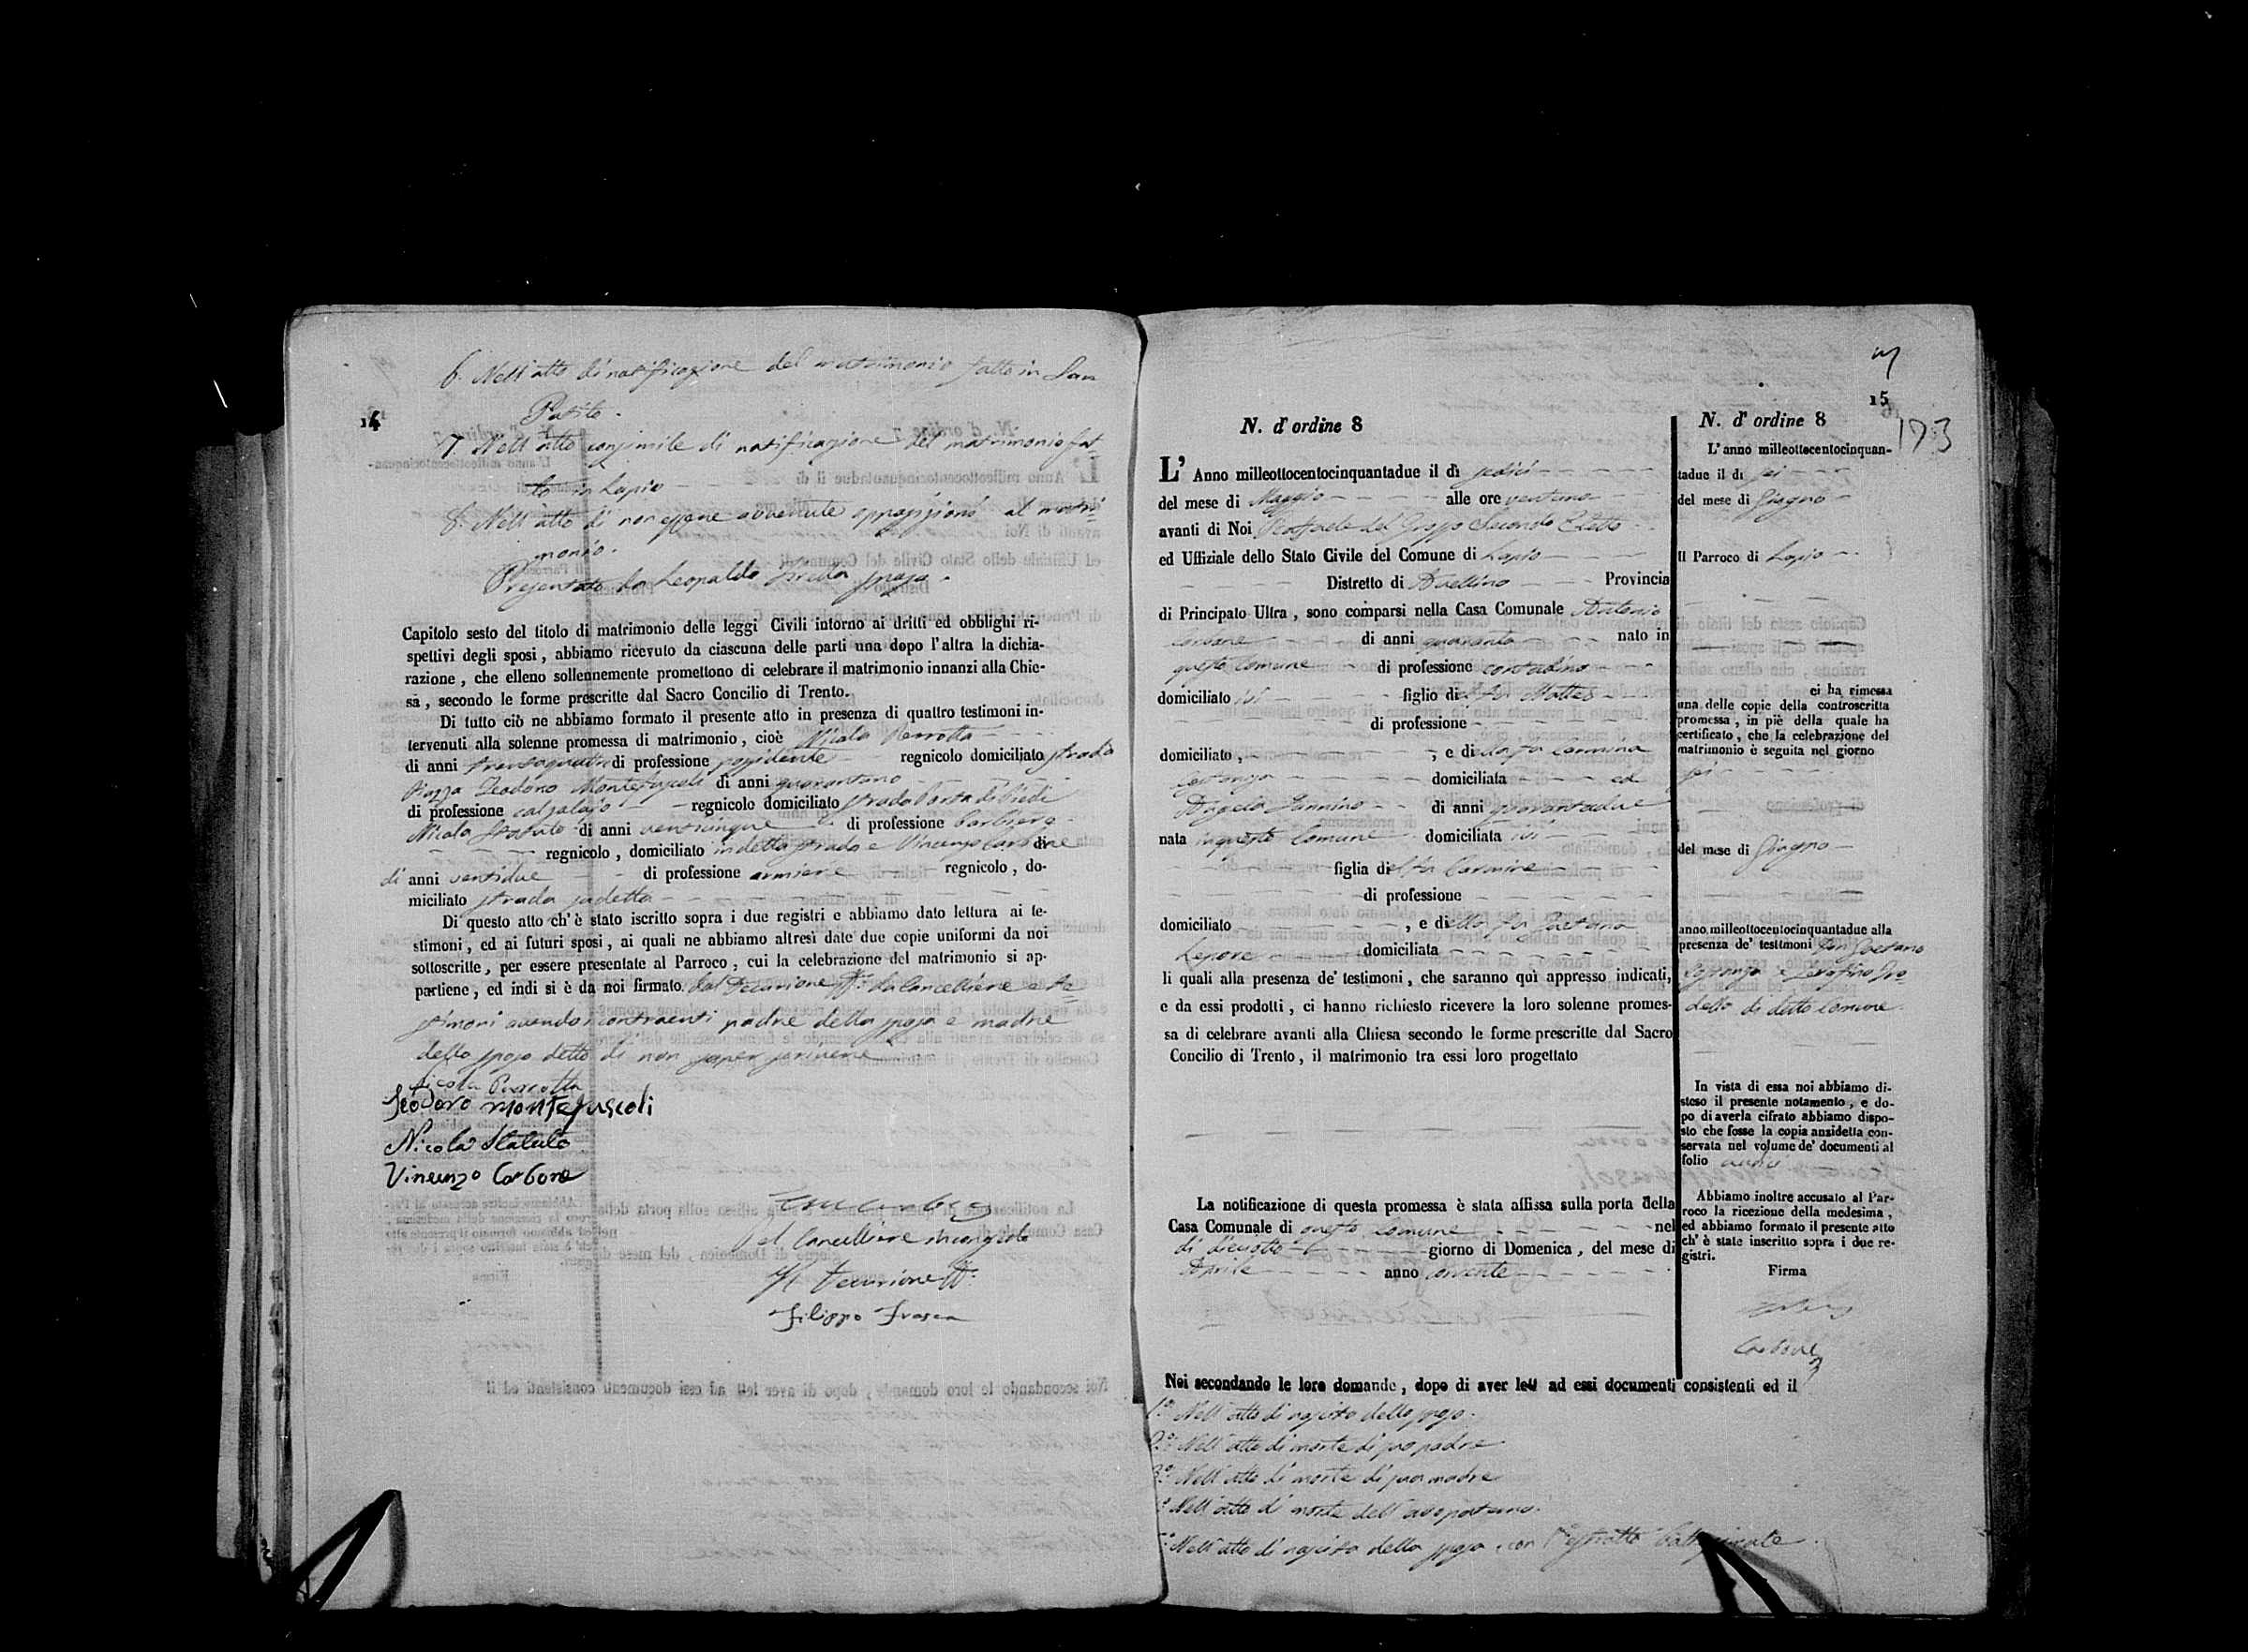 6. Nell'atto di notificazione del matrimonio fatto in San
Potito.
14
7. Nell'atto consimile di notificazione del matrimonio fat-
to in Lapio
8. Nell'atto di non essere avvenute opposizioni al matri-
monio.
Presentato da Leopaldo sposo.
Capitolo sesto del titolo di matrimonio delle leggi Civili intorno ai dritti ed obblighi ri-
spettivi degli sposi, abbiamo ricevuto da ciascuna delle parti una dopo l'altra la dichia-
razione, che elleno sollennemente promettono di celebrare il matrimonio innanzi alla Chie-
sa, secondo le forme prescritte dal Sacro Concilio di Trento.
Di tutto ciò ne abbiamo formato il presente atto in presenza di quattro testimoni in-
tervenuti alla solenne promessa di matrimonio, cioè Nicola Perrotta
di anni di professione possidente regnicolo domiciliato strada
Piazza Teodoro Montefuscoli di anni quarantuno
di professione calzolajo regnicolo domiciliato strada Porta di Piedi
Nicola Statuto di anni venticinque di professione barbiere
regnicolo, domiciliato in detta strada e Vincenzo Carbone di
di anni ventidue di professione armiere regnicolo, do-
miciliato strada sudetta
Di questo atto ch'è stato iscritto sopra i due registri e abbiamo dato lettura ai te-
stimoni, ed ai futuri sposi, ai quali ne abbiamo altresì date due copie uniformi da noi
sottoscritte, per essere presentate al Parroco, cui la celebrazione del matrimonio si ap-
partiene, ed indi si è da noi firmato. dal Decurione dal Cancelliere e te-
stimoni avendo i contraenti padre della sposa e madre
dello sposo detto di non saper scrivere
Nicola Perrotta
Teodoro montefuscoli
Nicola Statuto
Vincenzo Carbone
Pel Cancelliere
Il Decurione
Filippo Frasca
15
173
N. d'ordine 8
L'Anno milleottocentocinquantadue il dì sedici
del mese di Maggio alle ore ventuno
avanti di Noi Raffaele del Grosso Secondo Eletto
ed Uffiziale dello Stato Civile del Comune di Lapio
Distretto di Avellino Provincia
di Principato Ultra, sono comparsi nella Casa Comunale Antonio
Carbone di anni quaranta nato in
questo Comune di professione contadino
domiciliato ivi figlio del fu Matteo
di professione
domiciliato, e di della fu Carmina
Costanza domiciliata ed
Angela Iannino di anni quarantadue
nata in questo Comune domiciliata ivi
figlia del fu Carmine
di professione
domiciliato, e di della fu Gaetana
Lepore domiciliata
li quali alla presenza de' testimoni, che saranno quì appresso indicati,
e da essi prodotti, ci hanno richiesto ricevere la loro solenne promes-
sa di celebrare avanti alla Chiesa secondo le forme prescritte dal Sacro
Concilio di Trento, il matrimonio tra essi loro progettato
La notificazione di questa promessa è stata affissa sulla porta della
Casa Comunale di questo Comune nel
dì dieciotto giorno di Domenica, del mese di
Aprile anno corrente
N. d'ordine 8
L'anno milleottocentocinquan-
tadue il di sei
del mese di Giugno
Il Parroco di Lapio
ci ha rimessa
una delle copie della controscritta
promessa, in piè della quale ha
certificato, che la celebrazione del
matrimonio è seguita nel giorno
sei
del mese di Giugno
anno milleottocentocinquantadue alla
presenza de' testimoni Gaetano
Costanza e Serafino
di detto Comune
In vista di essa noi abbiamo di-
steso il presente notamento, e do-
po di averla cifrato abbiamo dispo-
sto che fosse la copia anzidetta con-
servata nel volume de' documenti al
folio undici
Abbiamo inoltre accusato al Par-
roco la ricezione della medesima,
ed abbiamo formato il presente atto
ch'è stato inscritto sopra i due re-
gistri.
Firma
Carbone
Noi secondando le loro domande, dopo di aver letti ad essi documenti consistenti ed il
1.º Nell'atto di nascita dello sposo.
2.º Nell'atto di morte di suo padre
3.º Nell'atto di morte di sua madre
Nell'atto di morte dell'avo paterno.
Nell'atto di nascita della sposa, con estratto